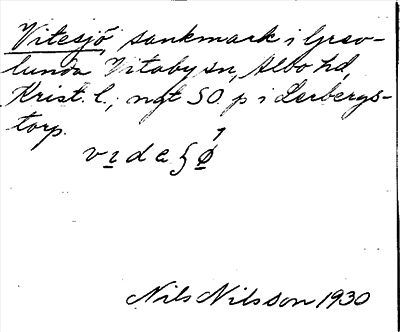 Vitesjö, sankmark i Grev-
lunda Vitaby sn, Albo hd,
Krist. l.; ngt SO. p i Lerbergs-
torp.
v ı d e ʒ ø̀
Nils Nilsson 1930